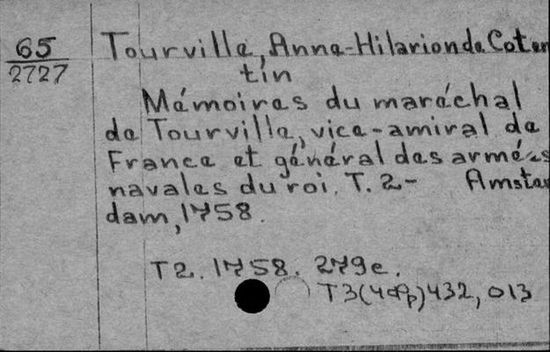 65
2727
Tourville, Anne-Hilarion de Coten
tin
Mémoires du maréchal
de Tourville, vice-amiral de
France et général des armées
navales du roi. T. 2- Amster
dam, 1758.
T2. 1758. 279c.
T3(4Фр)432, 013